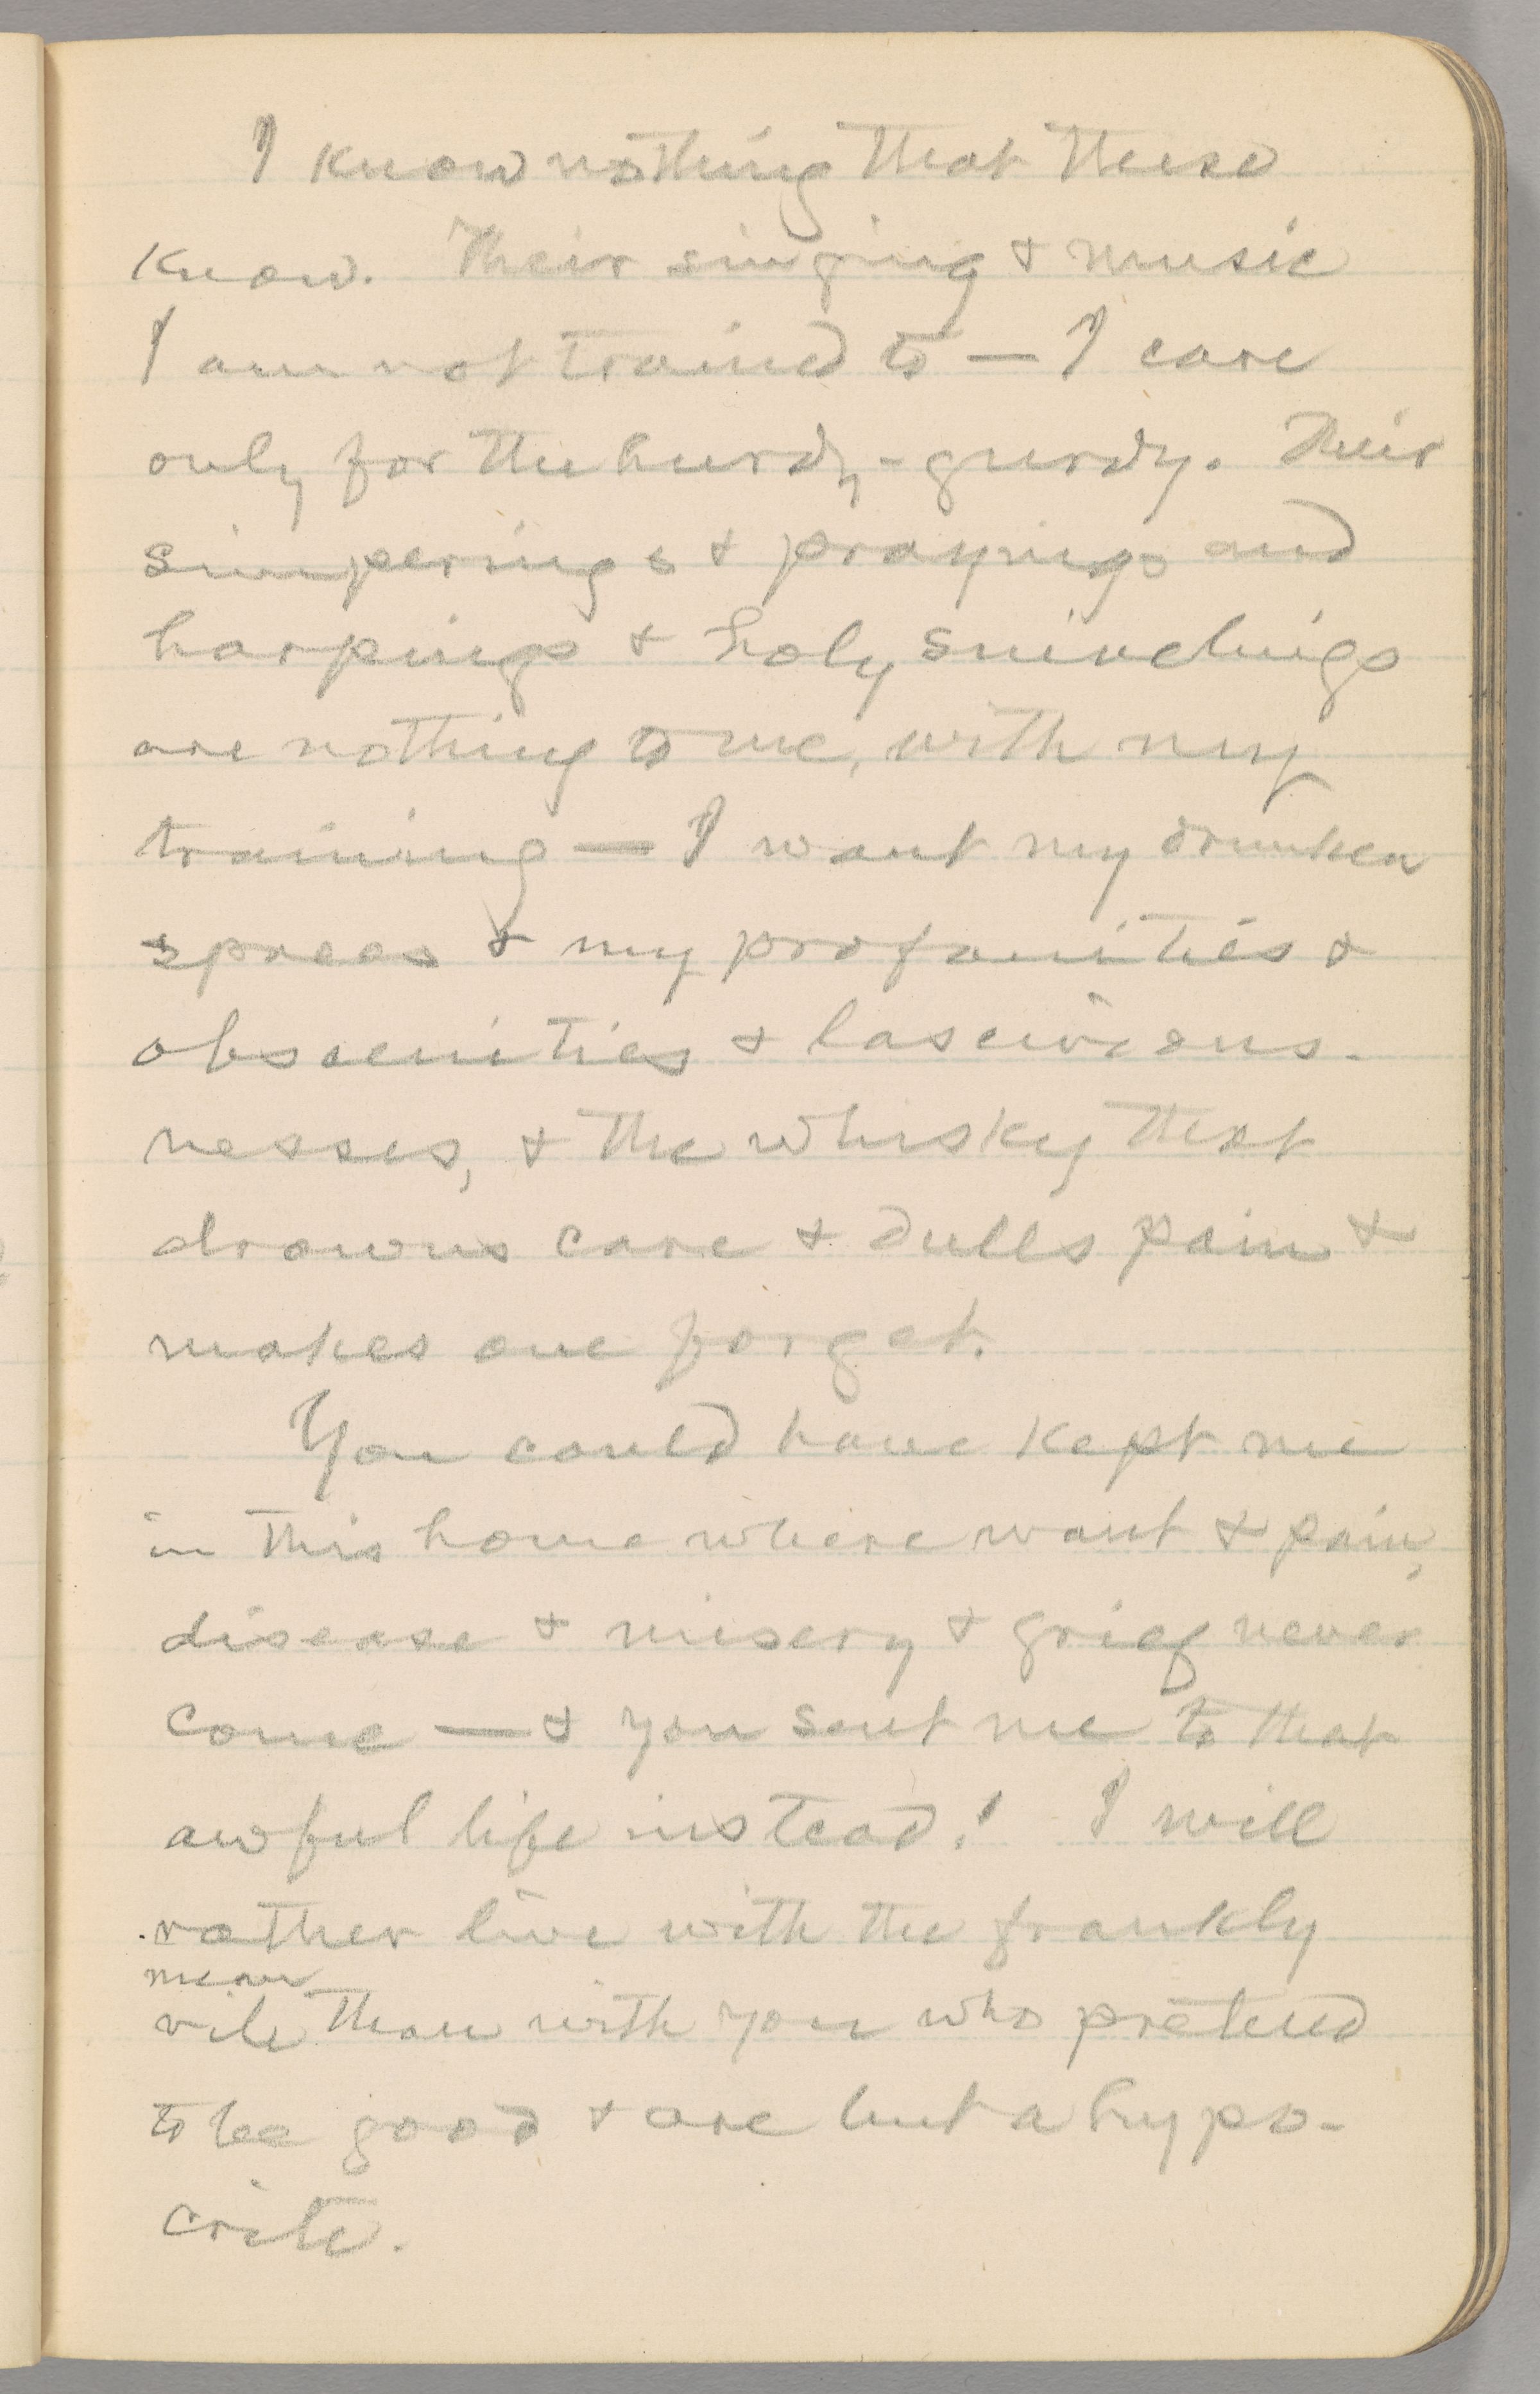 I know nothing that these
know. Their singing & music
I am not trained to — I care
only for the hurdy-gurdy. Their
simperings & prayings and
harpings & holy snivelings
are nothing to me, with my
training — I want my drunken
sprees & my profanities &
obscenities & lascivious-
nesses, & the whisky that
drowns care & dulls pain &
makes one forget.
You could have kept me
in this home where want & pain,
disease & misery & grief never
come — & you sent me to that
awful life instead! I will
rather live with the frankly
mean
vile than with you who pretend
to be good & are but a hypo-
crite.